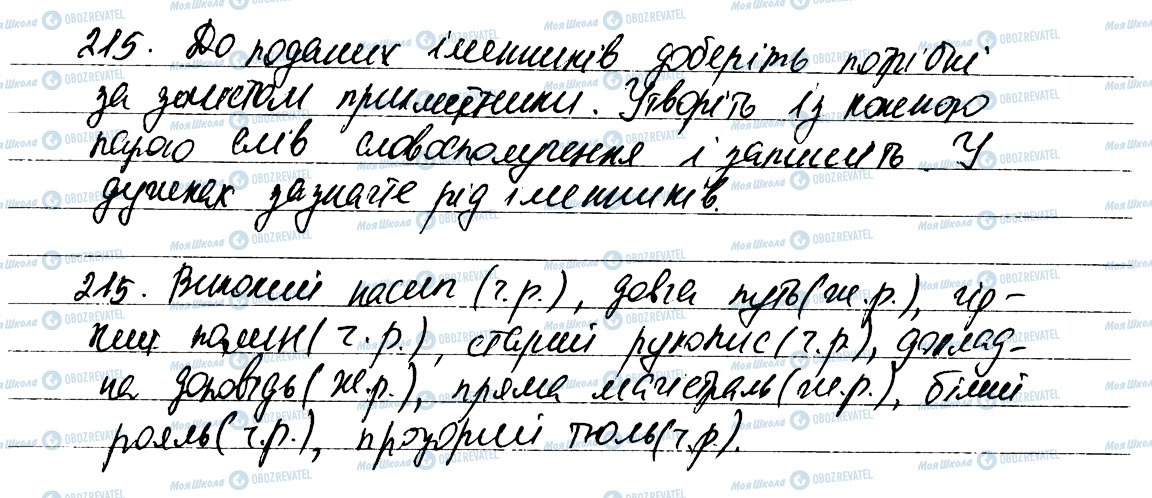 215. До поданих іменників доберіть потрібні
за змістом прикметники. Утворіть із кожною
парою слів словосполучення і запишіть. У
дужках зазначте рід іменників.
215. Високий насип (ч.р.), довга путь (ж.р.), гір-
кий полин (ч.р.), старий рукопис (ч.р.), доклад-
на доповідь (ж.р.), пряма магістраль (ж.р.), білий
рояль (ч.р.), прозорий тюль (ч.р).